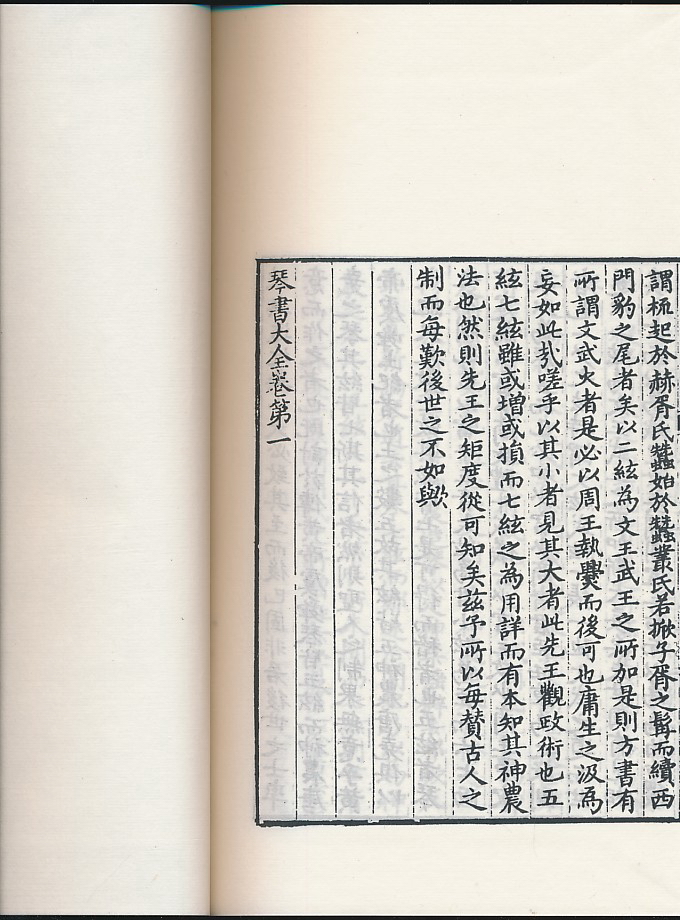 謂柩起於赫胥氏蠶始於蠶叢氏若掀子胥之髯而續西
門豹之尾者矣以二絃為文王武王之所加是則方書有
所謂文武火者是必以周王執爨而後可也庸生之汲為
妄如此㢤嗟乎以其小者見其大者此先王觀政術也五
絃七絃雖或增或損而七絃之為用詳而有本知其神農
法也然則先王之矩度從可知矣茲予所以每賛古人之
制而每歎後世之不如歟
琴書大全卷第一